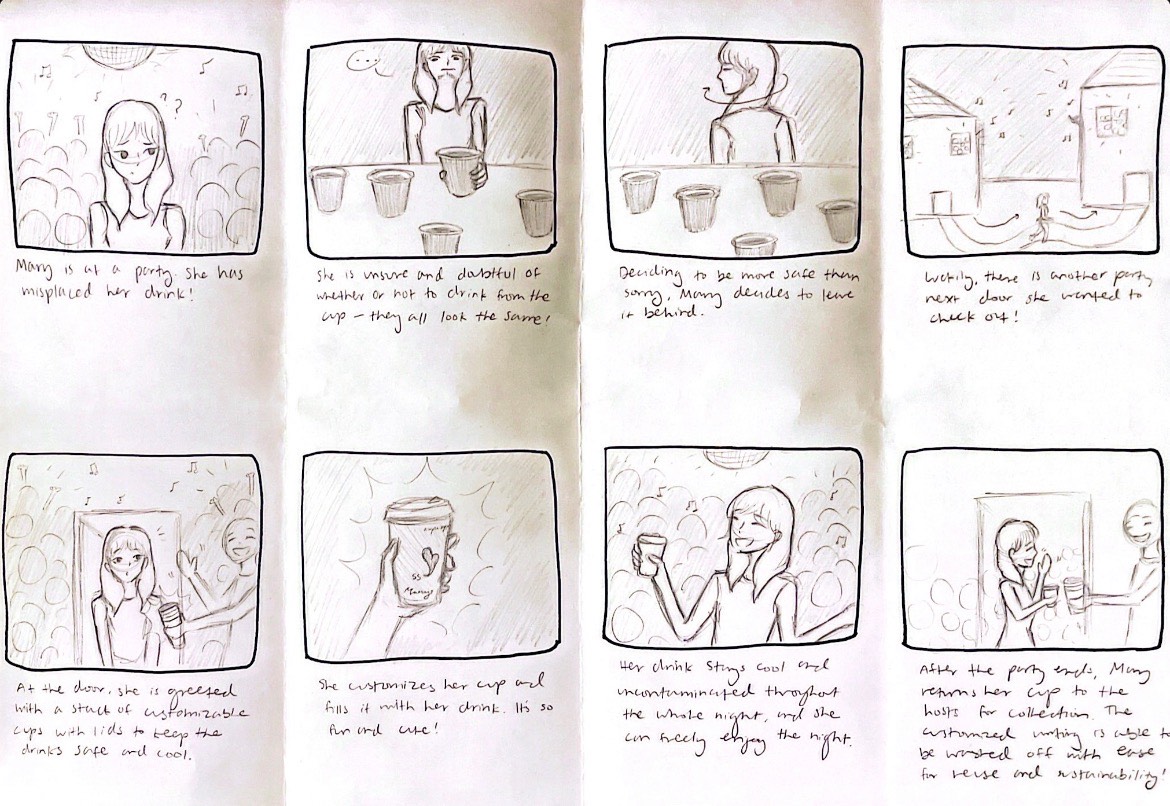 ??
Mary is at a party. She has
misplaced her drink!
...
She is unsure and doubtful of
whether or not to drink from the
cup – they all look the same!
Deciding to be more safe than
sorry, Mary decides to leave
it behind.
there is another party
next door she wanted to
check out!
At the door, she is greeted
with a stack of customizable
cups with lids to keep the
drinks safe and cool.
Mary
She customizes her cup and
fills it with her drink. It's so
fun and cute!
Her drink stays cool and
uncontaminated throughout
the whole night, and she
can freely enjoy the night.
After the party ends, Mary
returns her cup to the
hosts for collection. The
customized writing is able to
be washed off with ease
for reuse and sustainability!